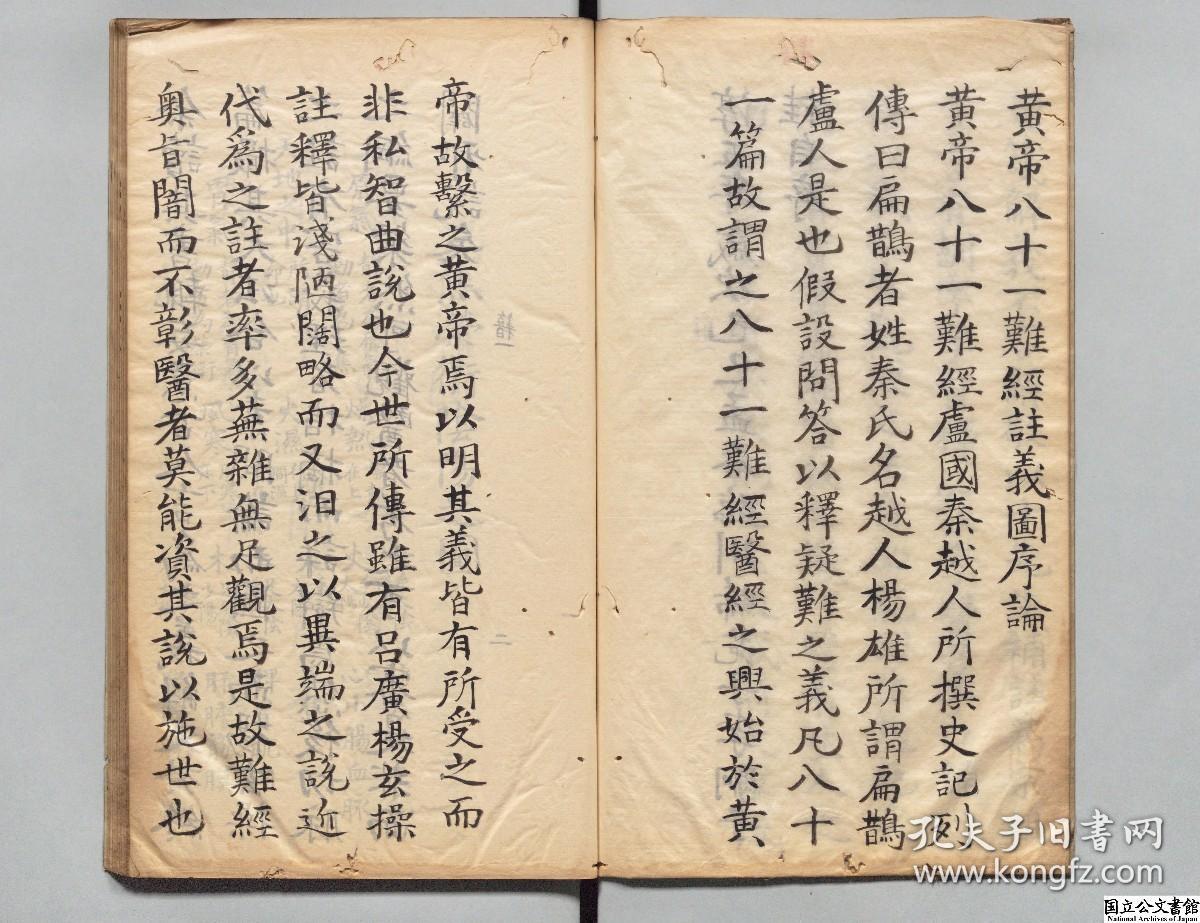 黃帝八十一難經註義圖序論
黃帝八十一難經盧國秦越人所撰史記列
傳曰扁鵲者姓秦氏名越人楊雄所謂扁鵲
盧人是也假設問答以釋疑難之義凡八十
一篇故謂之八十一難經醫經之興始於黃
帝故繫之黃帝焉以明其義皆有所受之而
非私智曲說也今世所傳雖有呂廣楊玄操
註釋皆淺陋闊略而又汩之以異端之說近
代為之註者率多蕪雜無足觀焉是故難經
奧旨闇而不彰醫者莫能資其說以施世也
孔夫子旧书网
www.kongfz.com
国立公文書館
National Archives of Japan